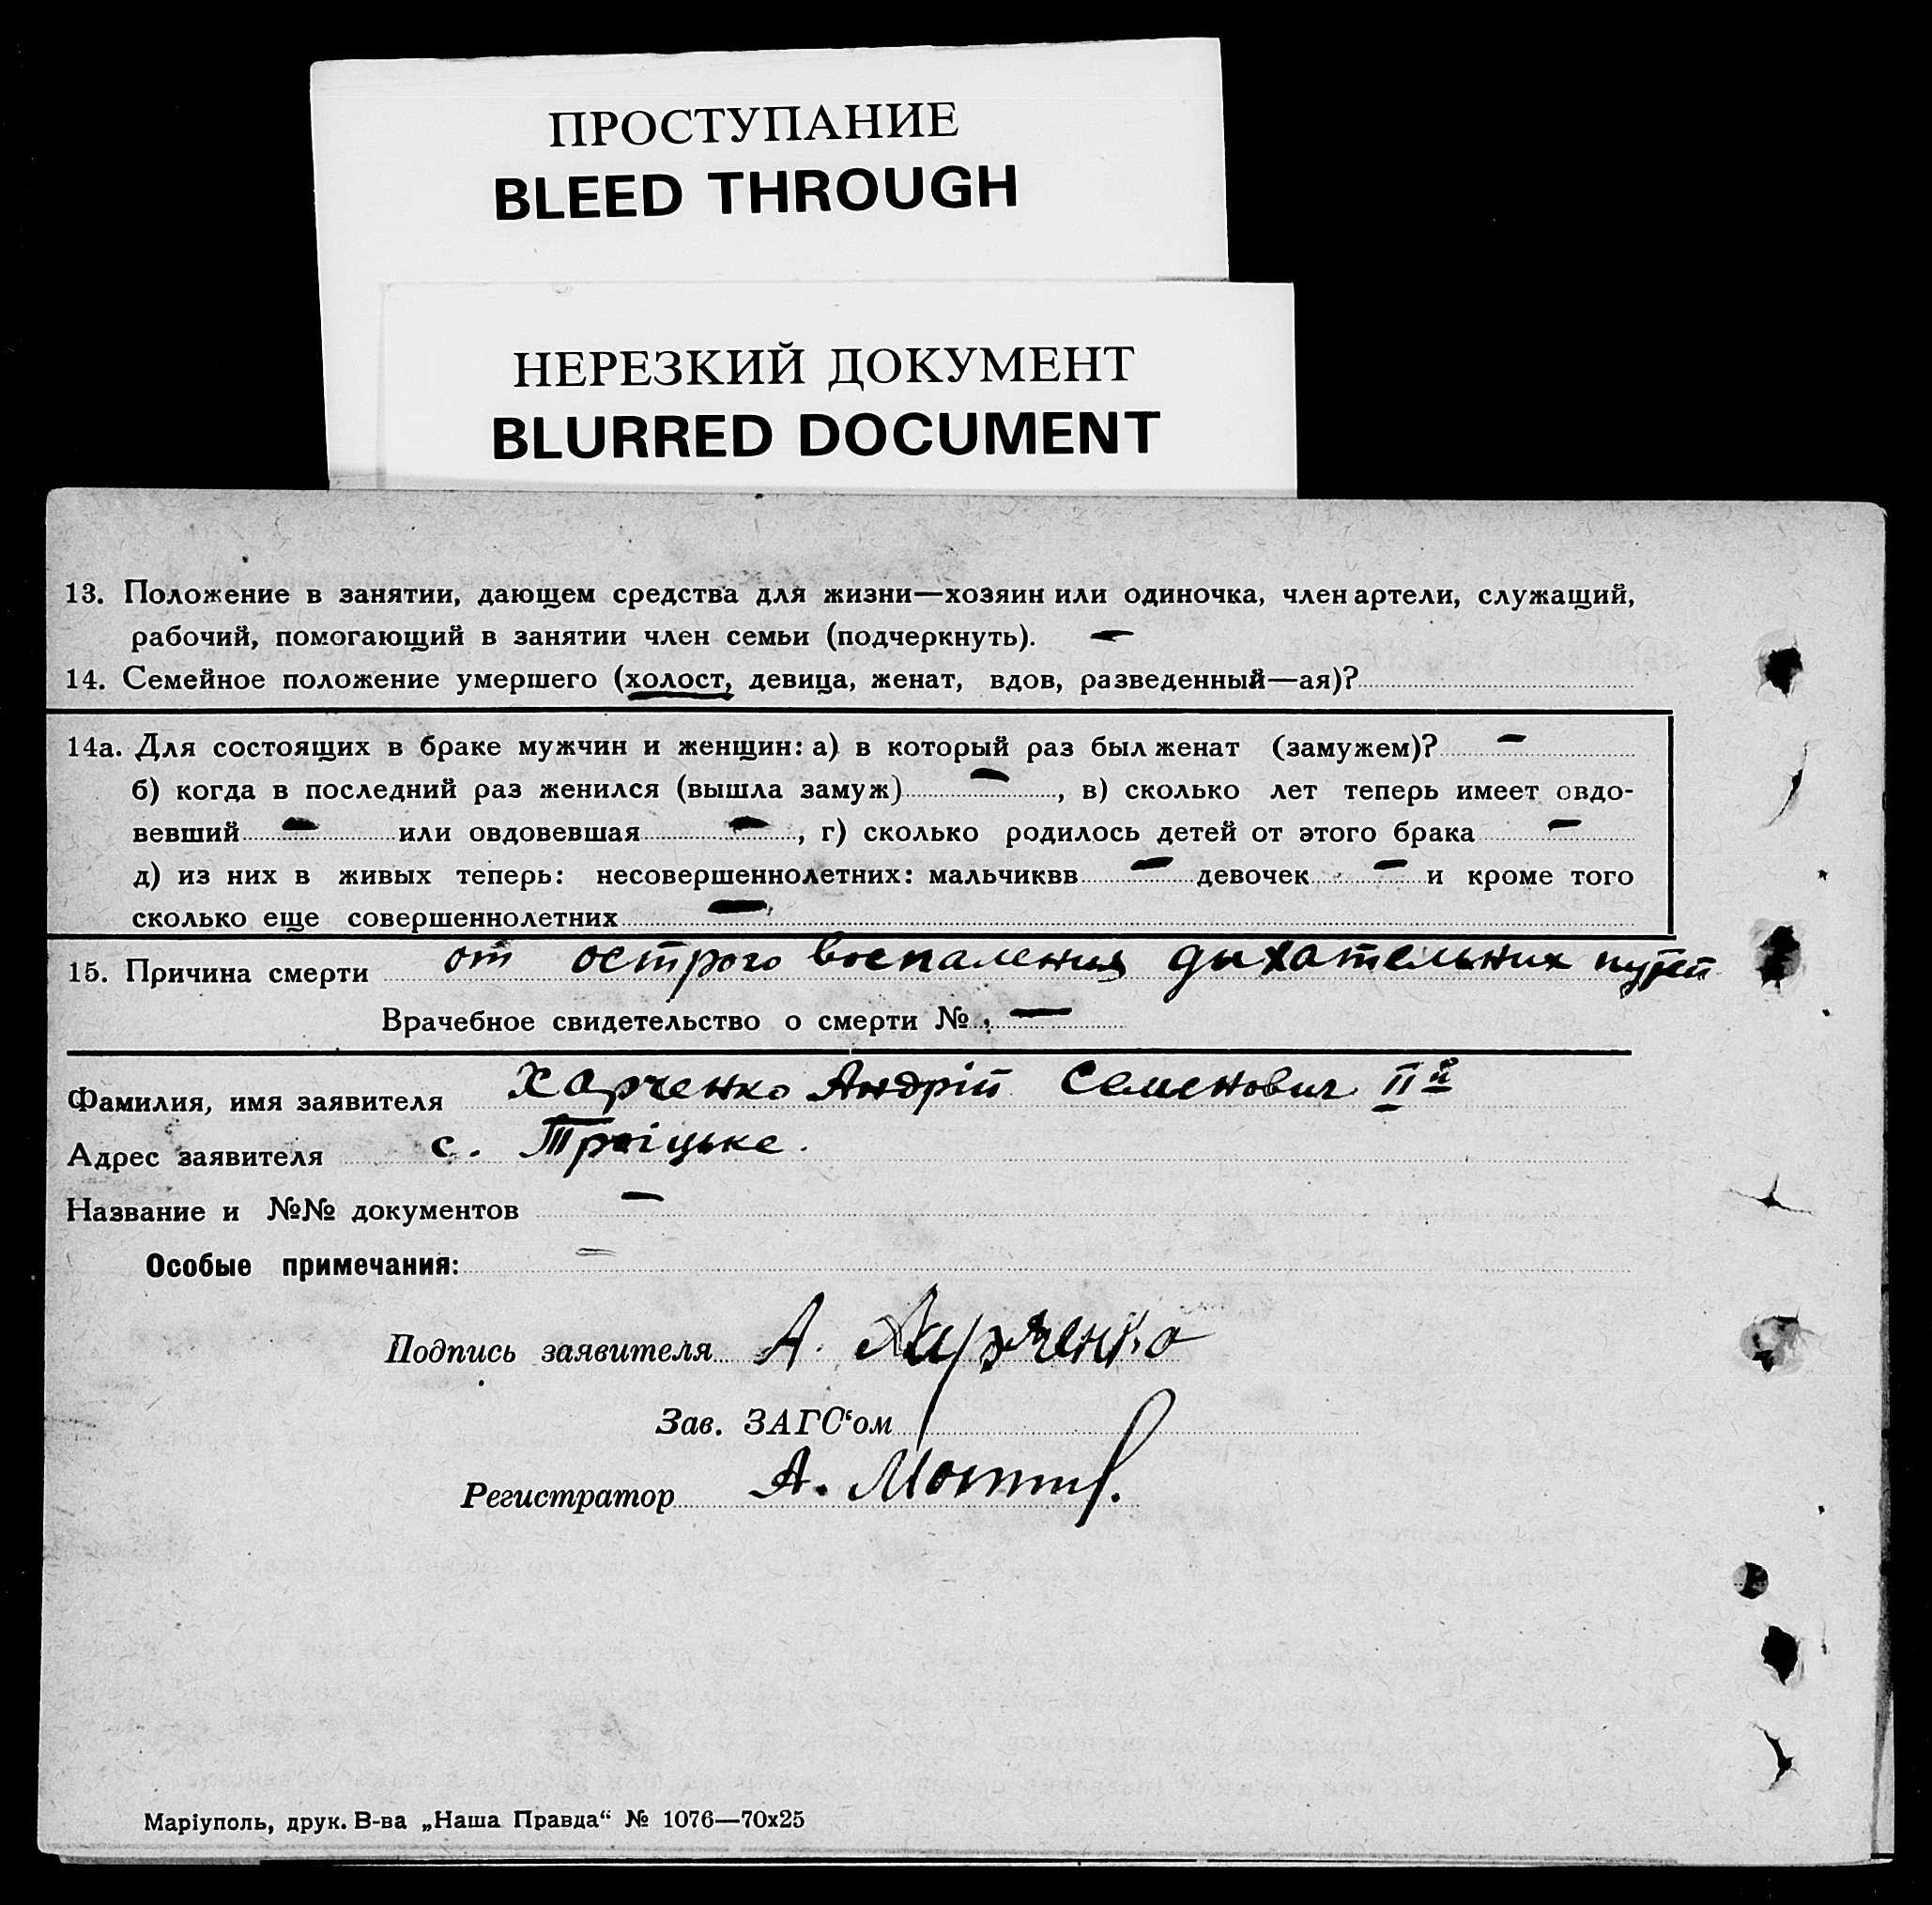 ПРОСТУПАНИЕ
BLEED THROUGH
НЕРЕЗКИЙ ДОКУМЕНТ
BLURRED DOCUMENT
13. Положение в занятии, дающем средства для жизни—хозяин или одиночка, член артели, служащий,
рабочий, помогающий в занятии член семьи (подчеркнуть). —
14. Семейное положение умершего (холост, девица, женат, вдов, разведенный—ая)?
14а. Для состоящих в браке мужчин и женщин: а) в который раз был женат (замужем)? —
б) когда в последний раз женился (вышла замуж) — , в) сколько лет теперь имеет овдо-
вевший — или овдовевшая — , г) сколько родилось детей от этого брака —
д) из них в живых теперь: несовершеннолетних: мальчиквв — девочек — и кроме того
сколько еще совершеннолетних —
15. Причина смерти от острого воспаления дыхательных путей
Врачебное свидетельство о смерти № —
Фамилия, имя заявителя Харченко Андрій Семенович II й
Адрес заявителя с. Троіцьке.
Название и №№ документов —
Особые примечания: —
Подпись заявителя А. Харченко
Зав. ЗАГС‘ом
Регистратор А.
Маріуполь, друк. В-ва „Наша Правда“ № 1076—70х25